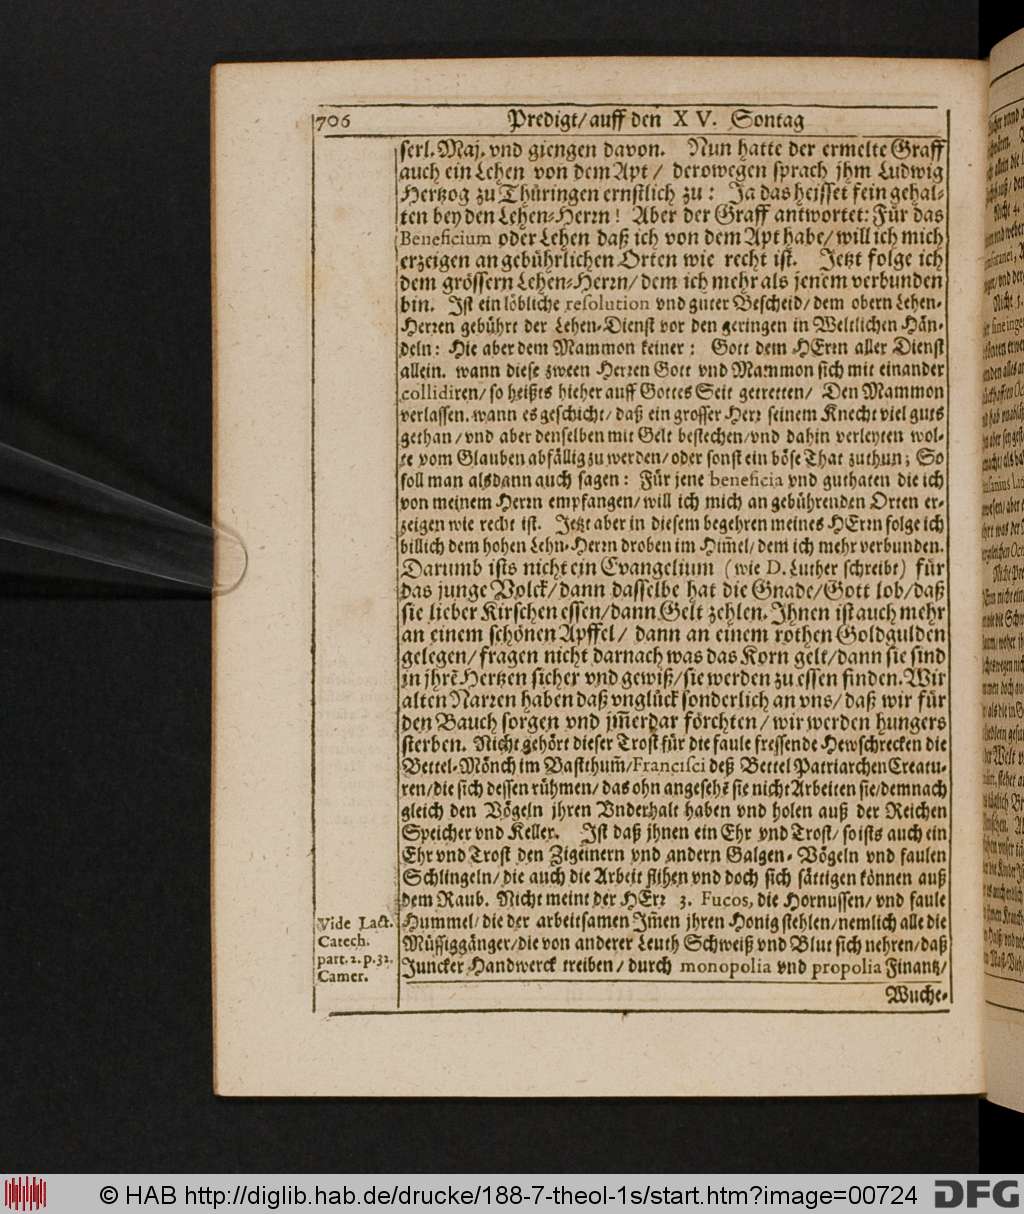 706 Predigt/ auff den XV. Sontag
serl. Maj. vnd giengen davon. Nun hatte der ermelte Graff
auch ein Lehen von dem Apt/ derowegen sprach jhm Ludwig
Hertzog zu Thüringen ernstlich zu: Ja das heisset fein gehal-
ten bey den Lehen-Herrn! Aber der Graff antwortet: Für das
Beneficium oder Lehen daß ich von dem Apt habe/ will ich mich
erzeigen an gebührlichen Orten wie recht ist. Jetzt folge ich
dem grössern Lehen-Herrn/ dem ich mehr als jenem verbunden
bin. Ist ein löbliche resolution vnd guter Bescheid/ dem obern Lehen-
Herren gebührt der Lehen-Dienst vor den geringen in Weltlichen Hän-
deln: Hie aber dem Mammon keiner: Gott dem HErrn aller Dienst
allein. wann diese zween Herren Gott vnd Mammon sich mit einander
collidiren/ so heißts hieher auff Gottes Seit getretten/ Den Mammon
verlassen. wann es geschicht/ daß ein grosser Herr seinem Knecht viel guts
gethan/ vnd aber denselben mit Gelt bestechen/ vnd dahin verleyten wol-
te vom Glauben abfällig zu werden/ oder sonst ein böse That zuthun; So
soll man alsdann auch sagen: Für jene beneficia vnd guthaten die ich
von meinem Herrn empfangen/ will ich mich an gebührenden Orten er-
zeigen wie recht ist. Jetzt aber in diesem begehren meines HErrn folge ich
billich dem hohen Lehn-Herrn droben im Him̃el/ dem ich mehr verbunden.
Darumb ists nicht ein Evangelium (wie D. Luther schreibt) für
das junge Volck/ dann dasselbe hat die Gnade/ Gott lob/ daß
sie lieber Kirschen essen/ dann Gelt zehlen. Ihnen ist auch mehr
an einem schönen Apffel/ dann an einem rothen Goldgulden
gelegen/ fragen nicht darnach was das Korn gelt/ dann sie sind
in jhrẽ Hertzen sicher vnd gewiß/ sie werden zu essen finden. Wir
alten Narren haben daß vnglück sonderlich an vns/ daß wir für
den Bauch sorgen vnd jm̃erdar förchten/ wir werden hungers
sterben. Nicht gehört dieser Trost für die faule fressende Hewschrecken die
Bettel-Mönch im Bastthum̃/ Francisci deß Bettel Patriarchen Creatu-
ren/ die sich dessen rühmen/ das ohn angesehẽ sie nicht Arbeiten sie/ demnach
gleich den Vögeln jhren Vnderhalt haben vnd holen auß der Reichen
Speicher vnd Keller. Ist daß jhnen ein Ehr vnd Trost/ so ists auch ein
Ehr vnd Trost den Zigeinern vnd andern Galgen-Vögeln vnd faulen
Schlingeln/ die auch die Arbeit flihen vnd doch sich sättigen können auß
dem Raub. Nicht meint der HErr 3. Fucos, die Hornussen/ vnd faule
Hummel/ die der arbeitsamen Im̃en jhren Honig stehlen/ nemlich alle die
Müssiggänger/ die von anderer Leuth Schweiß vnd Blut sich nehren/ daß
Juncker Handwerck treiben/ durch monopolia vnd propolia Finantz/
Wuche-
Vide Lact.
Catech.
part. 2. p. 32.
Camer.
© HAB http://diglib.hab.de/drucke/188-7-theol-1s/start.htm?image=00724
DFG